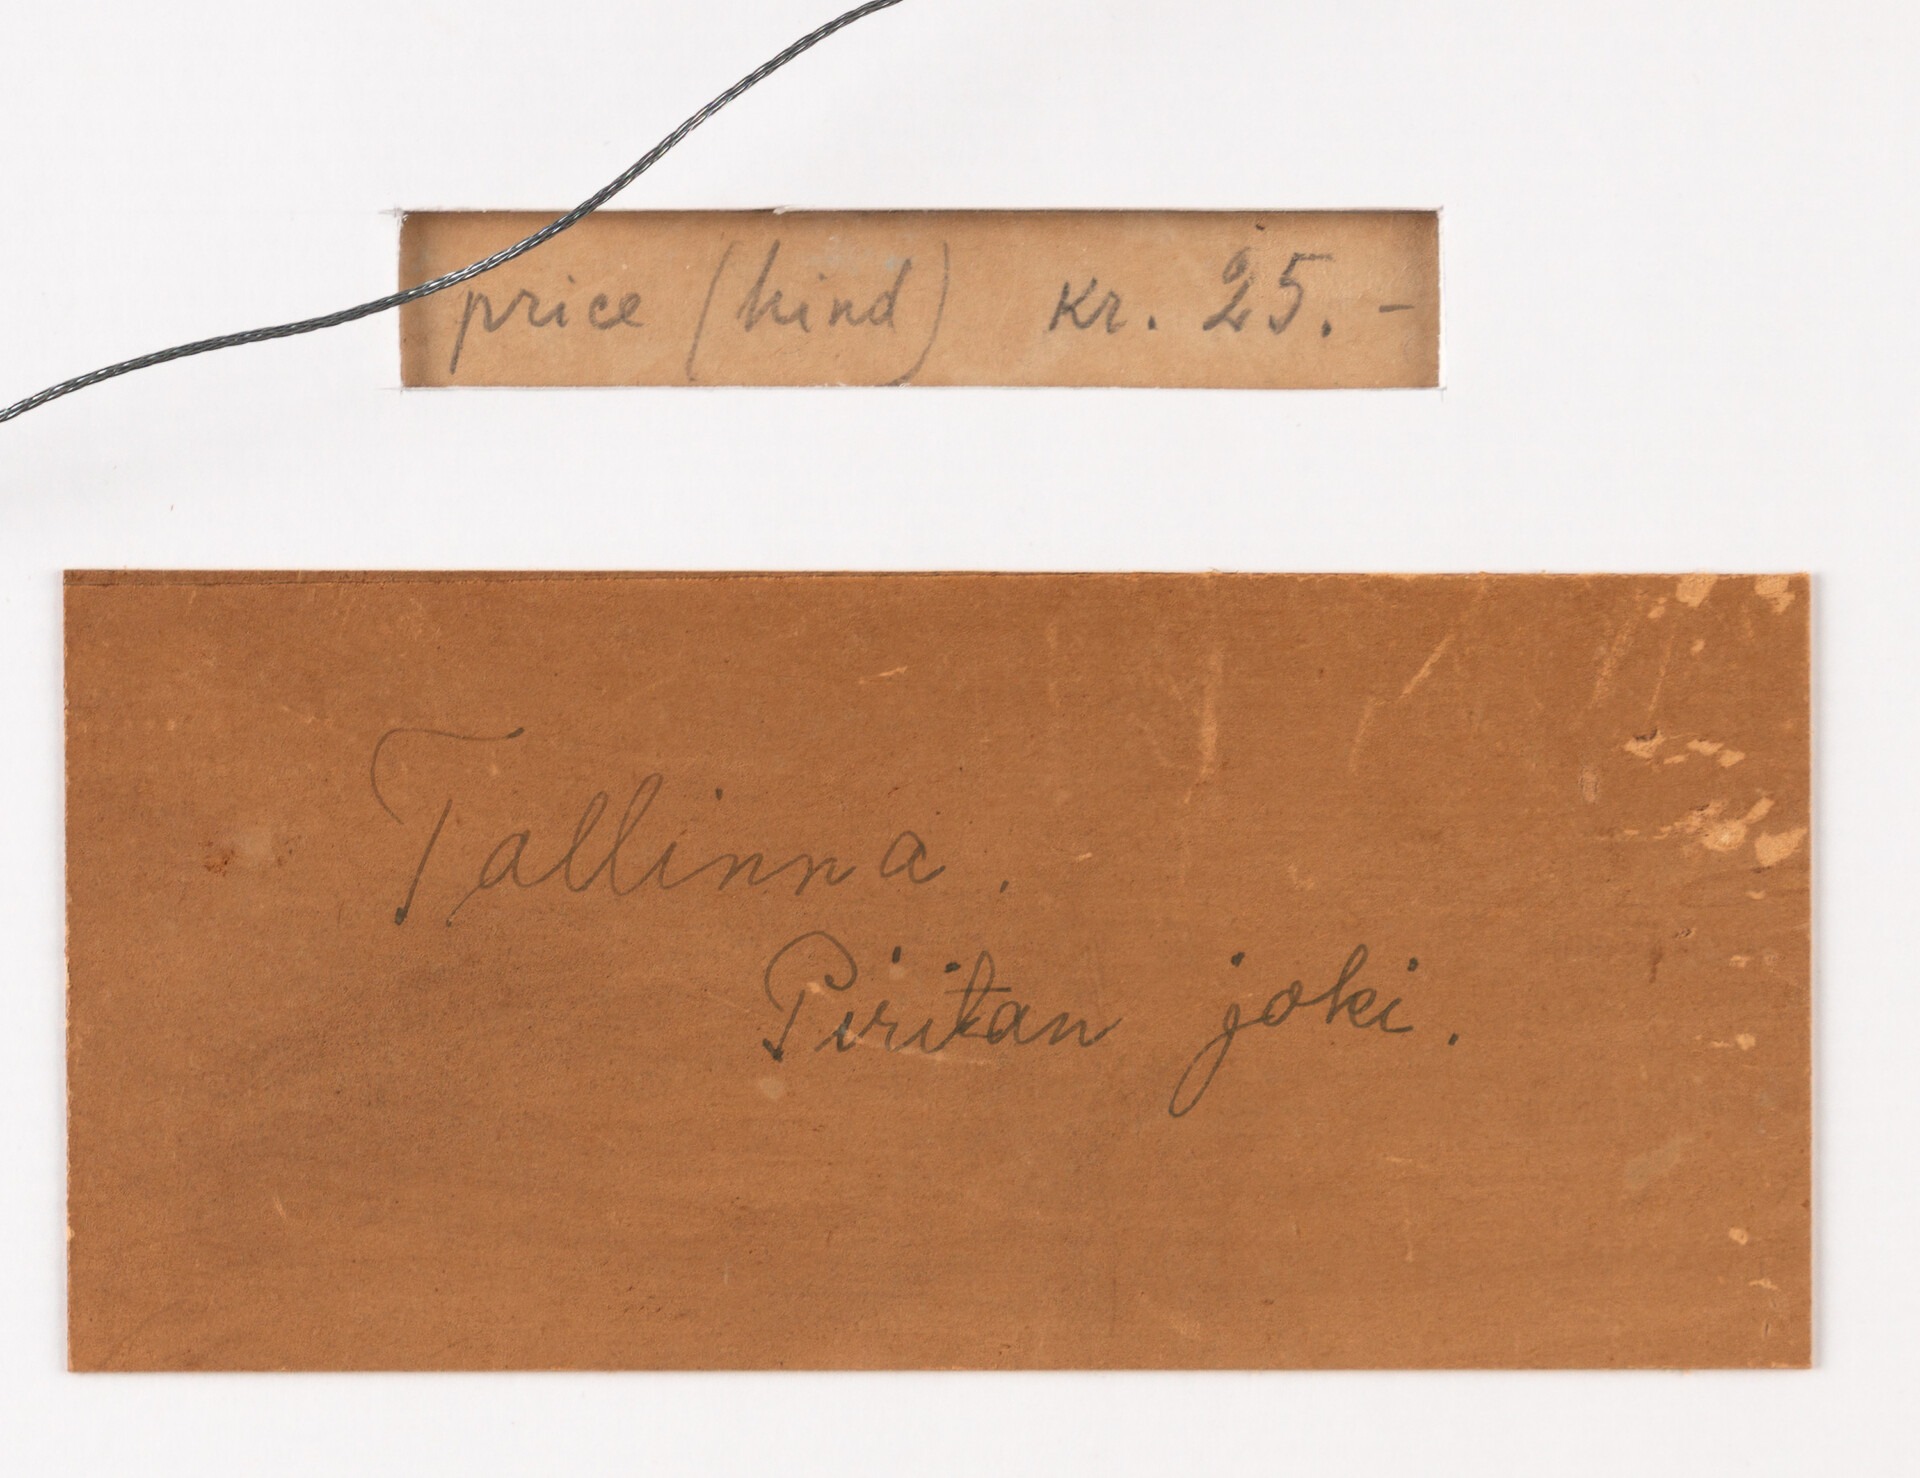 price (hind) kr. 25.-
Tallinna.
Piritan joki.